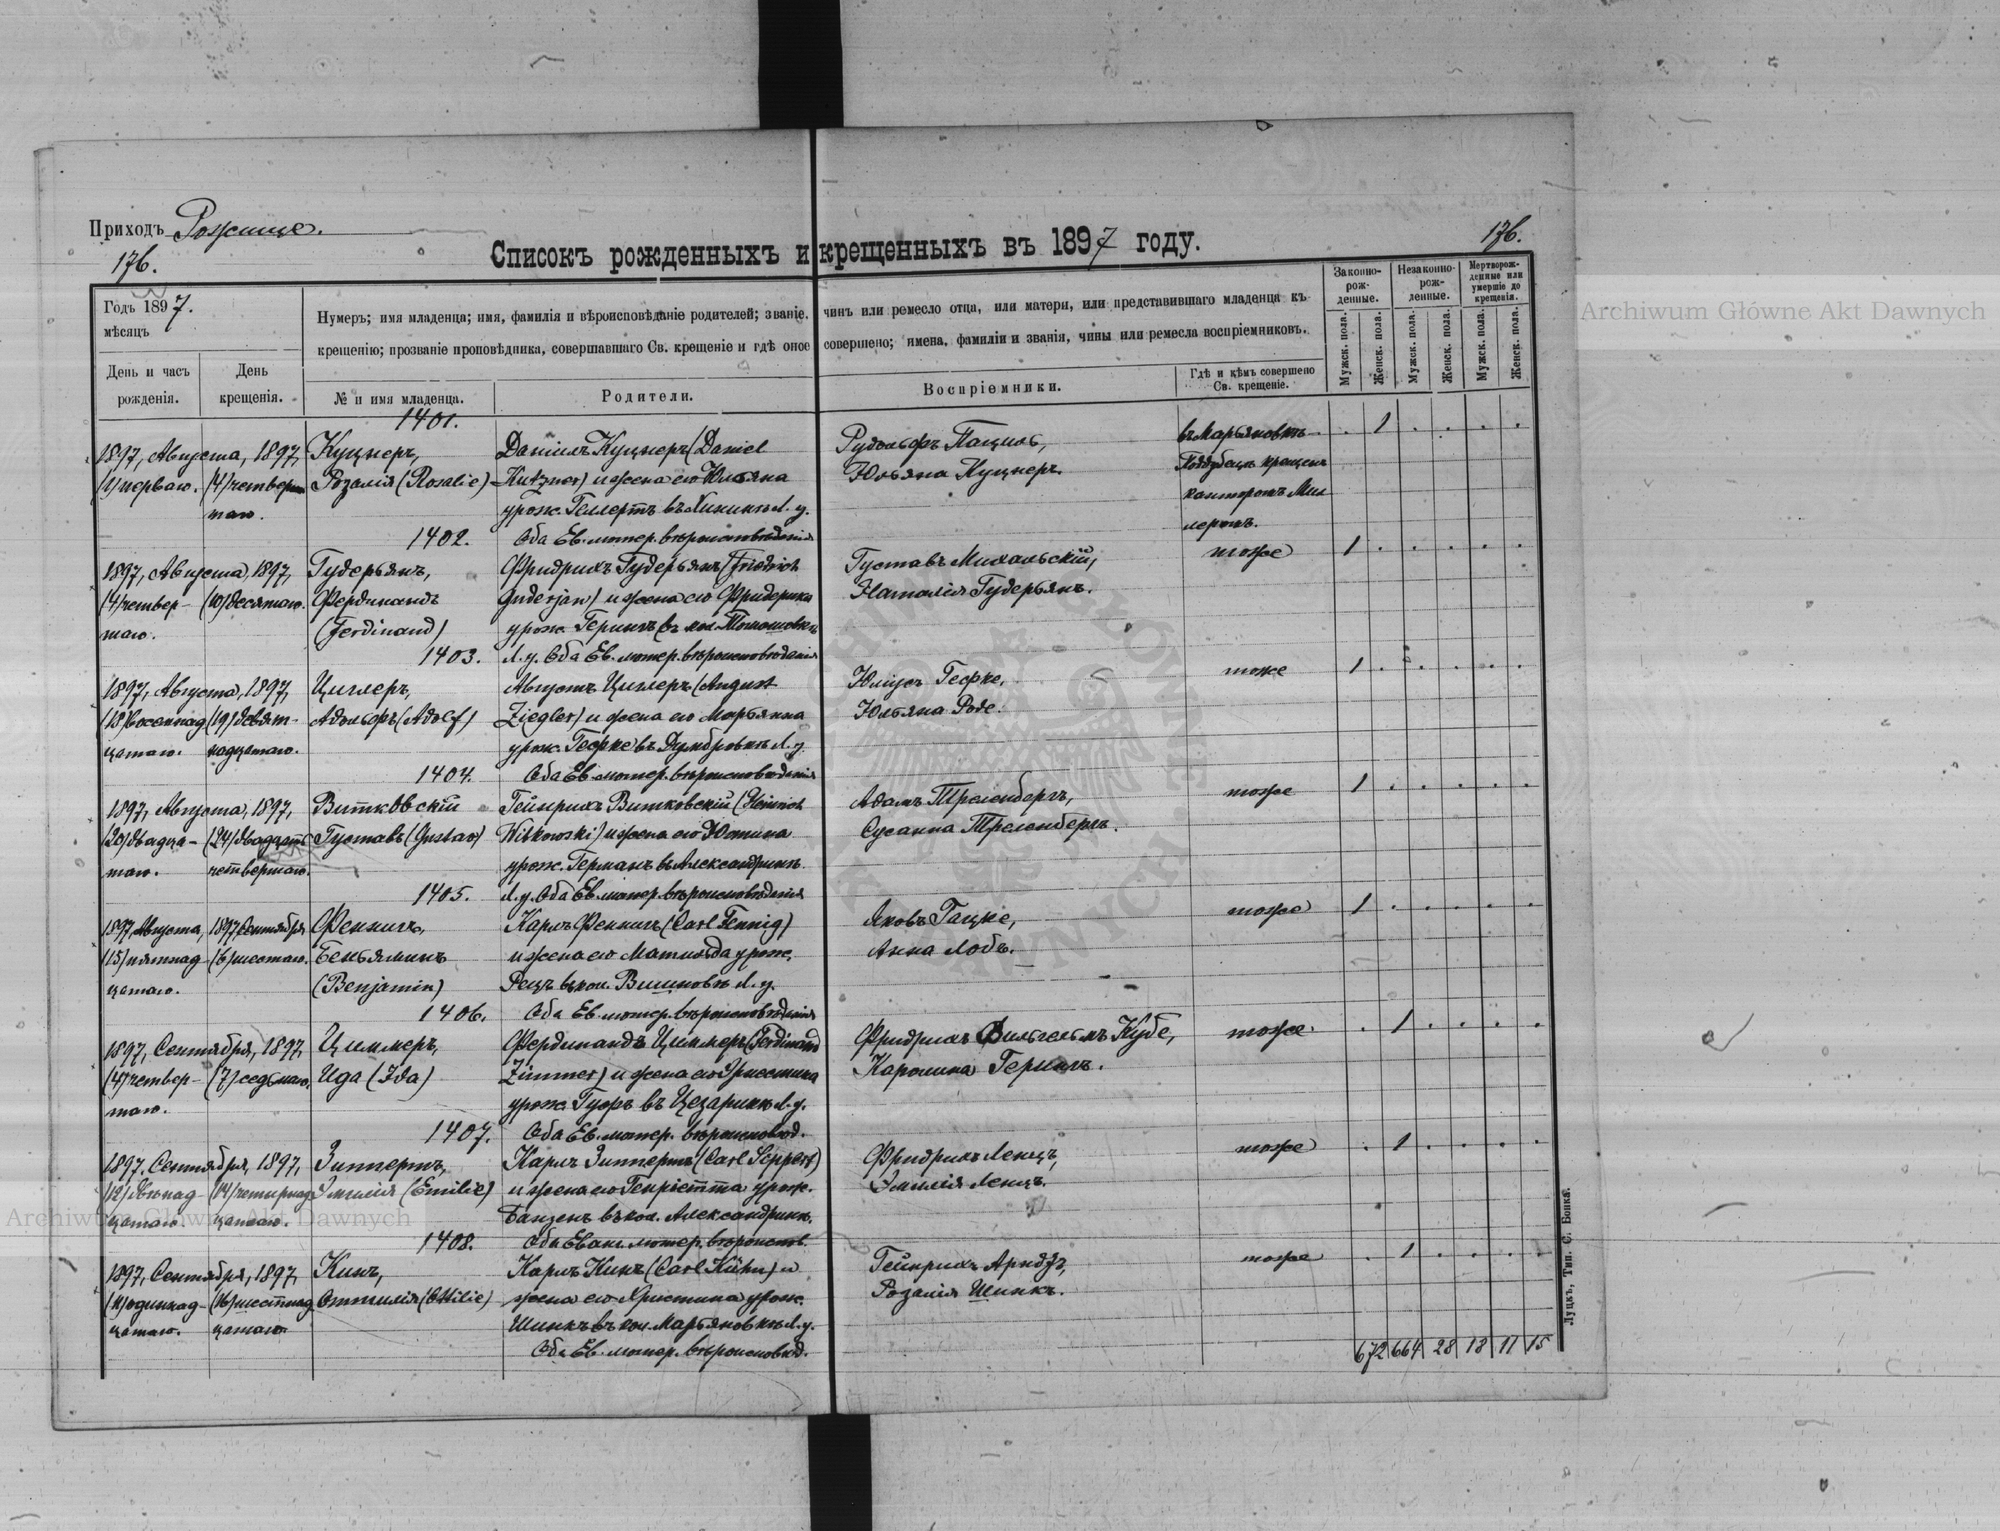 Приходъ Рожище.
176.
176.
Списокъ рожденныхъ и крещенныхъ въ 1897 году.
Годъ 1897.
мѣсяцъ
День и часъ рожденія.
День крещенія.
Нумеръ; имя младенца; имя, фамилія и вѣроисповѣданіе родителей; званіе, чинъ или ремесло отца, или матери, или представившаго младенца къ
крещенію; прозваніе проповѣдника, совершавшаго Св. крещеніе и гдѣ оное совершено; имена, фамиліи и званія, чины или ремесла воспріемниковъ.
№ и имя младенца.
Родители.
Воспріемники.
Гдѣ и кѣмъ совершено Св. крещеніе.
Законно-рож-денные.
Незаконно-рож-денные.
Мертворож-денные или умершіе до крещенія.
Мужск. пола.
Женск. пола.
Мужск. пола.
Женск. пола.
Мужск. пола.
Женск. пола.
1401.
1897, Августа, 1897, Куцнеръ, Даніилъ Куцнеръ (Daniel Рудольфъ Пациль, въ Марьяновкѣ . 1 . . . .
(1) перваго. (4) четвертаго. Розалія (Rosalie) Kutzner) и жена его Юльяна Юльяна Куцнеръ. Поддубецъ крещенъ
урож. Геллертъ въ Л. у. канторомъ Миллеромъ.
1402. Оба Ев. лютер. вѣроисповѣданія
1897, Августа, 1897, Гудерьянъ, Фридрихъ Гудерьянъ (Friedrich Густавъ Михальскій, тоже 1 . . . . .
(4) четвертаго. (10) десятаго. Фердинандъ Guderjan) и жена его Фридерика Наталія Гудерьянъ.
(Ferdinand) урож. Герингъ въ кол. Топошовкѣ
1403. Л. у. Оба Ев. лютер. вѣроисповѣданія
1897, Августа, 1897, Циглеръ, Августъ Циглеръ (August Юліусъ Гефке, тоже 1 . . . . .
(18) восемнадцатаго. (19) девятнадцатаго. Адольфъ (Adolf) Ziegler) и жена его Марьянна Юльяна Роде.
урож. Гефке въ Думбровкѣ Л. у.
1404. Оба Ев. лютер. вѣроисповѣданія
1897, Августа, 1897, Витковскій Гейнрихъ Витковскій (Heinrich Адамъ Треленбергъ, тоже 1 . . . . .
(20) двадцатаго. (24) двадцать четвертаго. Густавъ (Gustav) Witkowski) и жена его Юстина Сусанна Треленбергъ.
урож. Германъ въ Александринѣ
1405. Л. у. Оба Ев. лютер. вѣроисповѣданія
1897, Августа, 1897 Сентября Феннигъ, Карлъ Феннигъ (Carl Fennig) Яковъ Гацке, тоже 1 . . . . .
(15) пятнадцатаго. (6) шестаго. Беньяминъ и жена его Матильда урож. Анна Лобъ.
(Benjamin) Рецъ въ кол. Вишновѣ Л. у.
1406. Оба Ев. лютер. вѣроисповѣданія
1897, Сентября, 1897, Циммеръ, Фердинандъ Циммеръ (Ferdinand Фридрихъ Вильгельмъ Кубе, тоже . 1 . . . .
(4) четвертаго. (7) седьмаго. Ида (Ida) Zimmer) и жена его Эрнестина Каролина Герингъ.
урож. Гуоръ въ Цезаринѣ Л. у.
1407. Оба Ев. лютер. вѣроисповѣд.
1897. Сентября, 1897, Зиппертъ, Карлъ Зиппертъ (Carl Seppert) Фридрихъ Ленцъ, тоже . 1 . . . .
(12) двѣнадцатаго. (14) четырнадцатаго. Эмилія (Emilie) и жена его Генріетта урож. Эмилія Ленцъ.
Банзенъ въ кол. Александринѣ.
1408. Оба Еванг. лютер. вѣроиспов.
1897, Сентября, 1897, Кинъ, Карлъ Кинъ (Carl Kühn) и Гейнрихъ Арндтъ, тоже . 1 . . . .
(11) одиннадцатаго. (16) шестнадцатаго. Оттилія (Ottilie) жена его Христина урож. Розалія Шинкъ.
Шинкъ въ кол. Марьяновкѣ Л. у.
Оба Ев. лютер. вѣроисповѣд.
672 664 28 18 11 15
Луцкъ, Тип. С. Бонка.
Archiwum Główne Akt Dawnych
Archiwum Główne Akt Dawnych